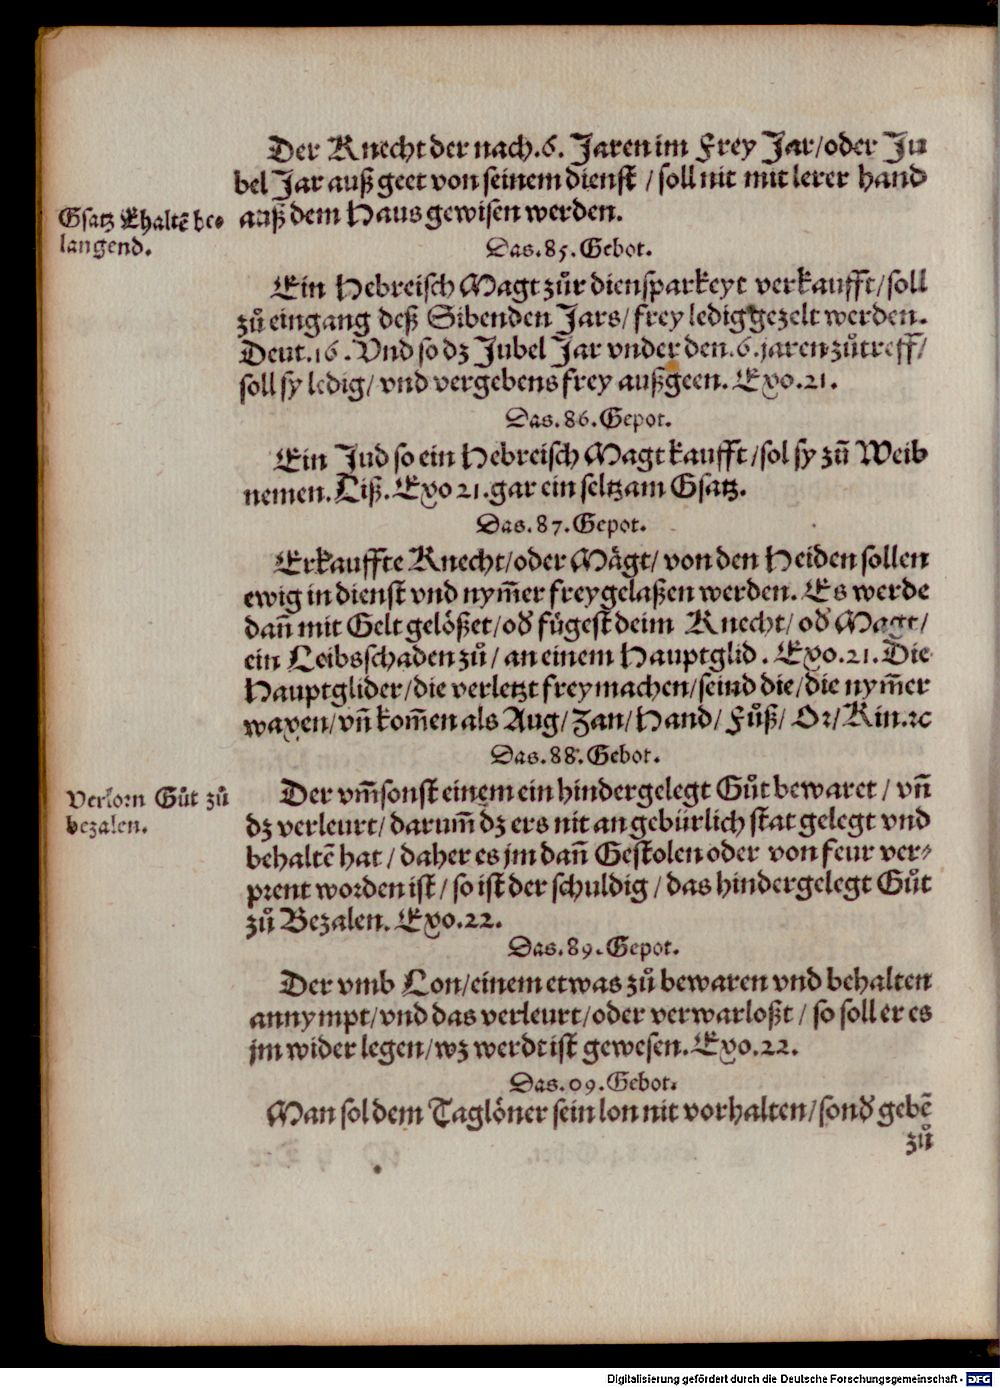 Der Knecht der nach .6. Jaren im Frey Jar/oder Ju
bel Jar auß geet von seinem dienst / soll nit mit lerer hand
auß dem Haus gewisen werden.
Gsatz Ehaltē be-
langend.
Das .85. Gebot.
Ein Hebreisch Magt zůr diensparkeyt verkaufft/soll
zů eingang deß Sibenden Jars/frey ledig gezelt werden.
Deut.16. Vnd so dz Jubel Jar vnder den .6. jaren zůtreff/
soll sy ledig/ vnd vergebens frey außgeen. Exo.21.
Das .86. Gepot.
Ein Jud so ein Hebreisch Magt kaufft/sol sy zū Weib
nemen. Diß. Exo 21. gar ein seltzam Gsatz.
Das .87. Gepot.
Erkauffte Knecht/oder Mägt/ von den Heiden sollen
ewig in dienst vnd nym̄er frey gelaßen werden. Es werde
dañ mit Gelt gelößet/od̛ fůgest deim Knecht/ od̛ Magt/
ein Leibsschaden zů/ an einem Hauptglid. Exo.21. Die
Hauptglider/die verletzt frey machen/seind die/die nym̄er
waxen/vñ kom̄en als Aug/Zan/Hand/Fůß/ Or/Kin.ꝛc
Das .88. Gebot.
Verlorn Gůt zů
bezalen.
Der vm̄sonst einem ein hindergelegt Gůt bewaret / vñ
dz verleurt/darum̄ dz ers nit an gebürlich stat gelegt vnd
behaltē hat / daher es jm dañ Gestolen oder von feur ver-
prent worden ist / so ist der schuldig / das hindergelegt Gůt
zů Bezalen. Exo.22.
Das .89. Gepot.
Der vmb Lon/einem etwas zů bewaren vnd behalten
annympt/vnd das verleurt/oder verwarloßt / so soll er es
jm wider legen/wz werdt ist gewesen. Exo.22.
Das .09. Gebot.
Man sol dem Taglöner sein lon nit vorhalten/sond̛ gebē
zů
Digitalisierung gefördert durch die Deutsche Forschungsgemeinschaft - DFG